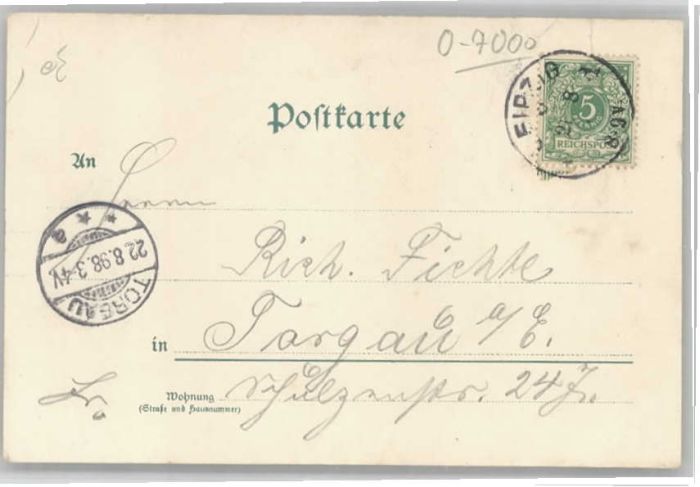 0-7000
5
REICHSPOST
Postkarte
An
Herrn
Rich. Fichte
TORGAU
22.8.98.3-4N.
* * a
in Torgau a/E.
Wohnung
(Straße und Hausnummer)
Schulzenstr. 24 I.
Fr.